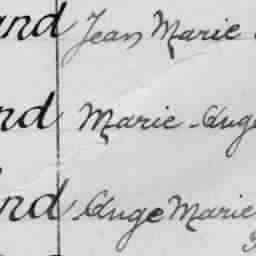 and Jean Marie
nd Marie - Ange
nd Ange Marie